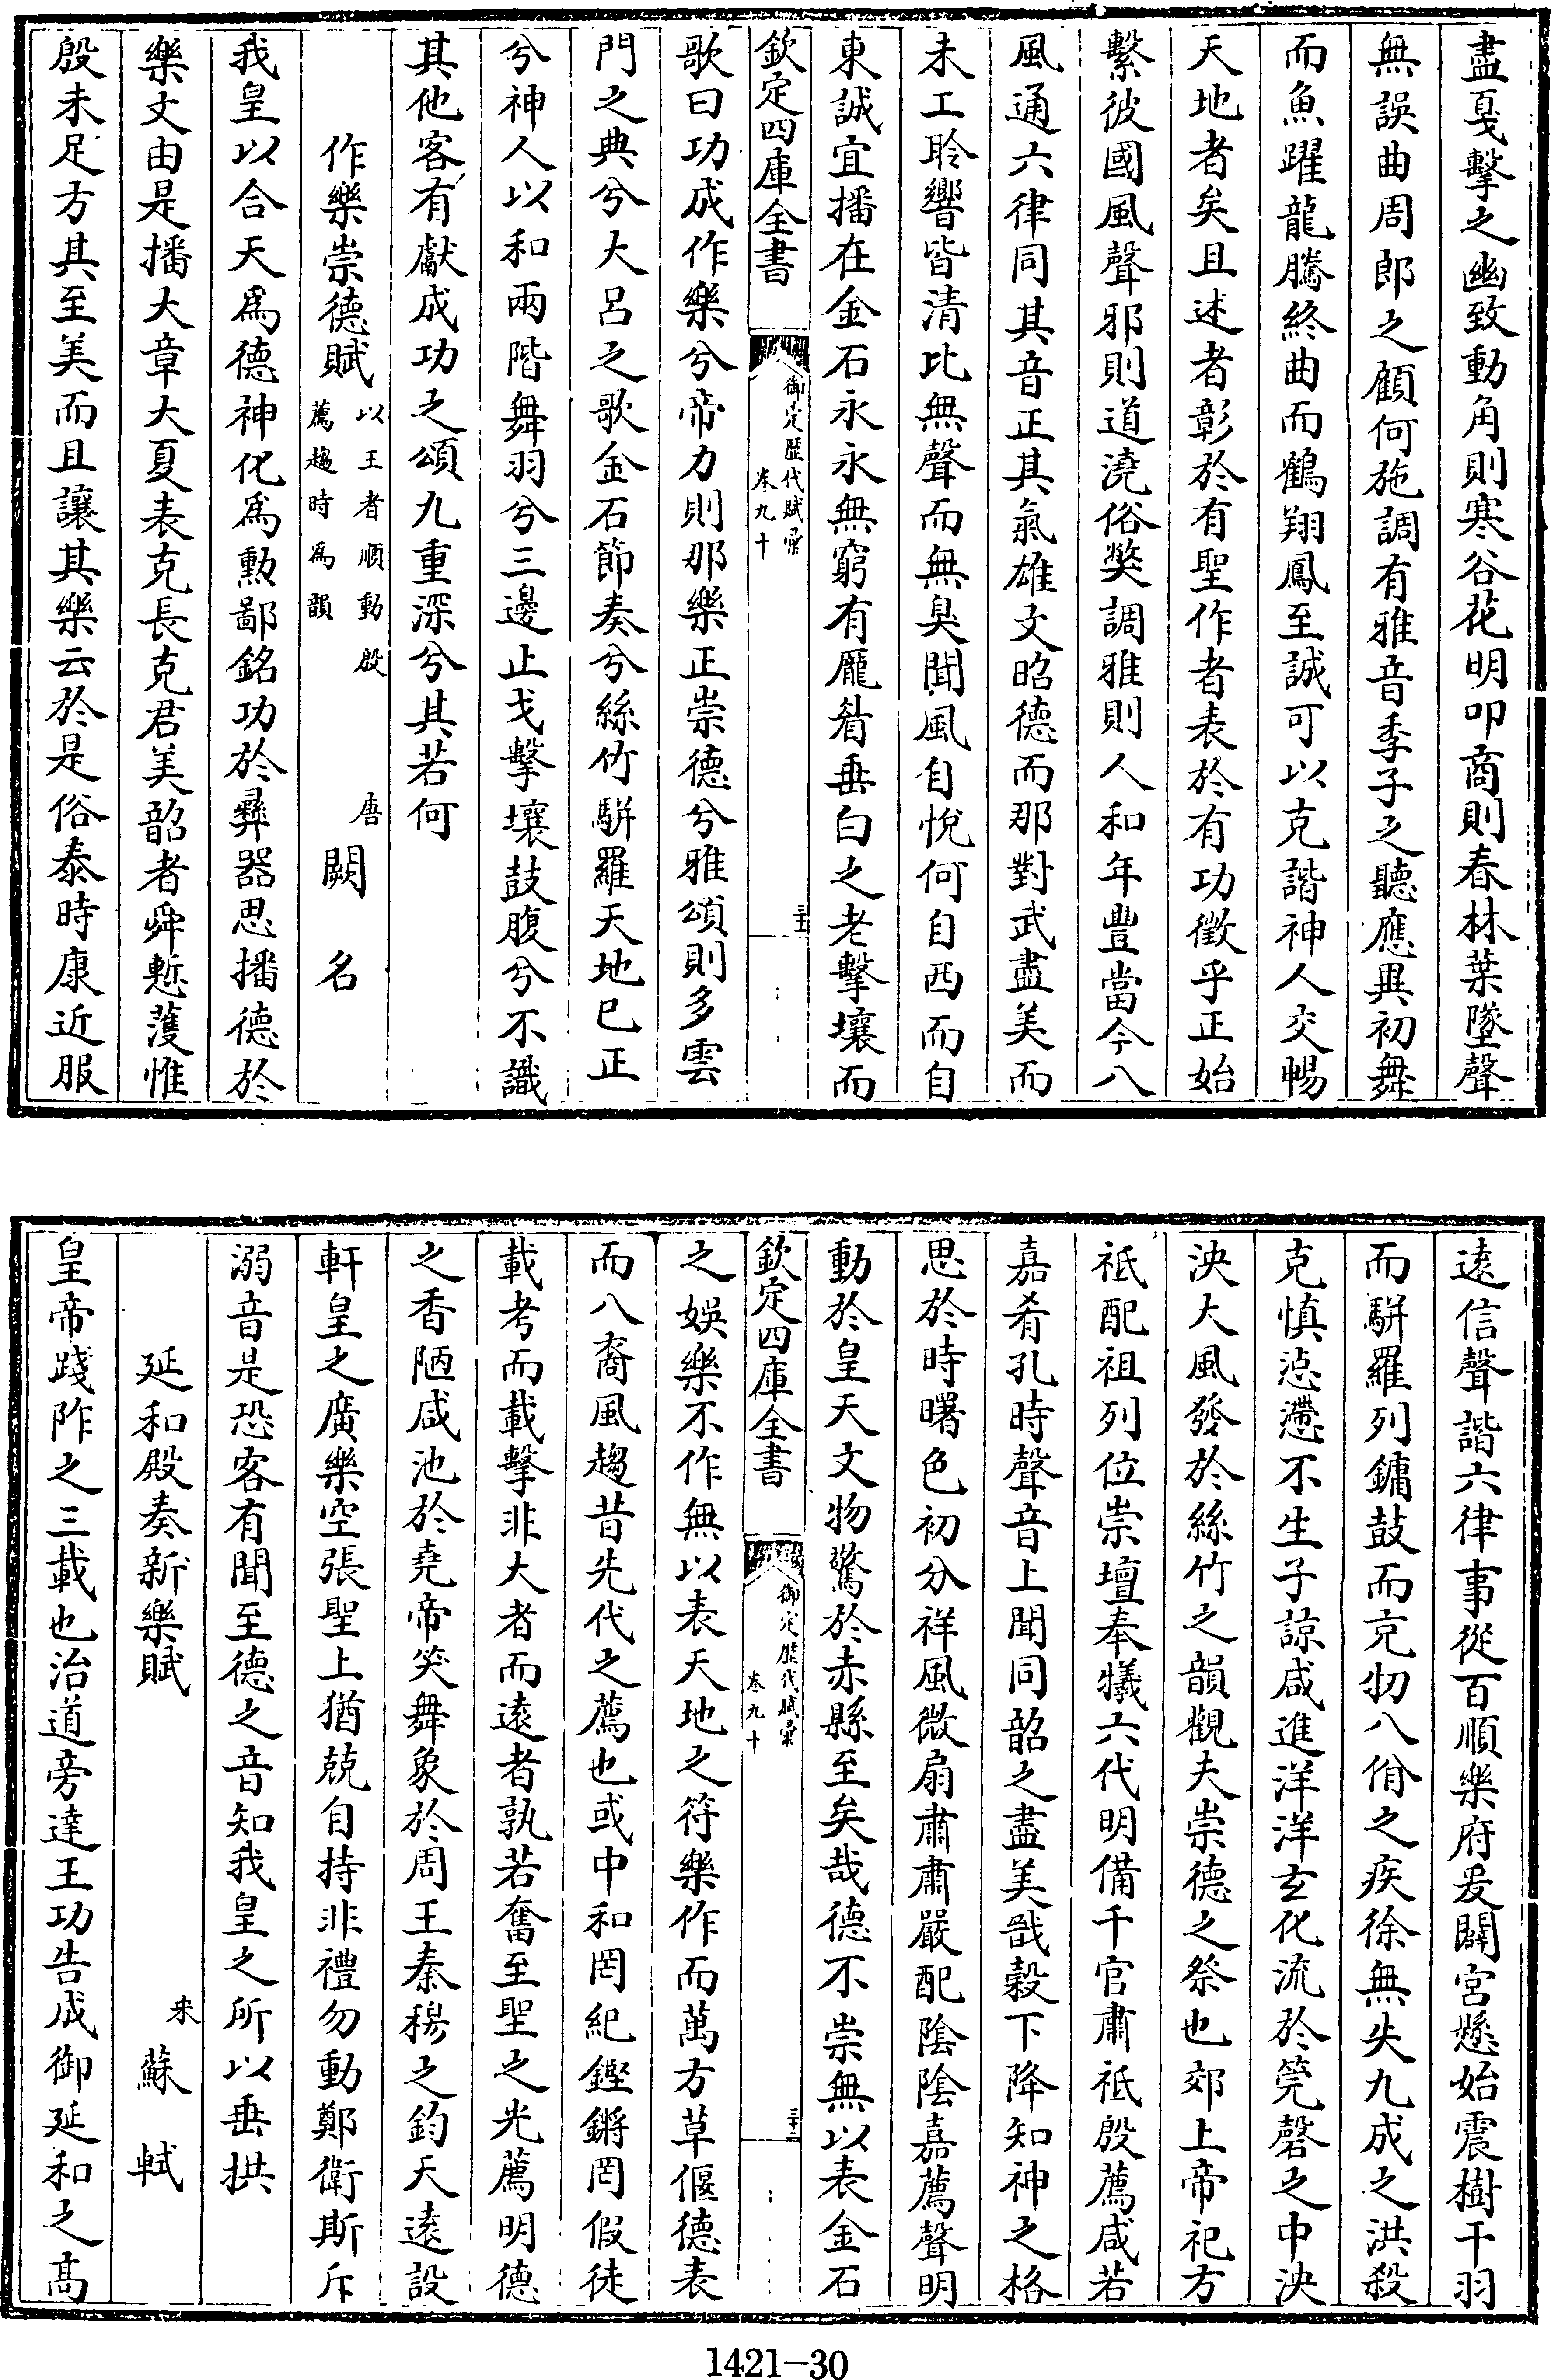 盡戛擊之幽致動角則寒谷花明叩商則春林葉墜聲
無誤曲周郎之顧何施調有雅音季子之聽應異初舞
而魚躍龍騰終曲而鶴翔鳳至誠可以克諧神人交暢
天地者矣且述者彰於有聖作者表於有功徵乎正始
繫彼國風聲邪則道澆俗獘調雅則人和年豐當今八
風通六律同其音正其氣雄文昭德而那對武盡美而
未工聆響皆清比無聲而無臭聞風自悅何自西而自
東誠宜播在金石永永無窮有厖眉垂白之老擊壤而
欽定四庫全書
御定歷代賦彙
卷九十
三十
歌曰功成作樂兮帝力則那樂正崇德兮雅頌則多雲
門之典兮大呂之歌金石節奏兮絲竹駢羅天地已正
兮神人以和兩階舞羽兮三邊止戈擊壤鼓腹兮不識
其他客有獻成功之頌九重深兮其若何
作樂崇德賦
以王者順動殷
薦趨時為韻
唐
闕名
我皇以合天爲德神化爲勲鄙銘功於彝器思播德於
樂文由是播大章大夏表克長克君美韶者舜慙頀惟
殷未足方其至美而且讓其樂云於是俗泰時康近服
遠信聲諧六律事從百順樂府爰闢宮懸始震樹干羽
而駢羅列鏞鼓而充牣八佾之疾徐無失九成之洪殺
克慎惉懘不生子諒咸進洋洋玄化流於筦磬之中泱
泱大風發於絲竹之韻觀夫崇德之祭也郊上帝祀方
祇配祖列位崇壇奉犧六代明備千官肅祇殷薦咸若
嘉肴孔時聲音上聞同韶之盡美戩穀下降知神之格
思於時曙色初分祥風微扇肅肅嚴配陰陰嘉薦聲明
動於皇天文物驚於赤縣至矣哉德不崇無以表金石
欽定四庫全書
御定歷代賦彙
卷九十
三十一
之娛樂不作無以表天地之符樂作而萬方草偃德表
而八裔風趨昔先代之薦也或中和罔紀鏗鏘罔假徒
載考而載擊非大者而遠者孰若奮至聖之光薦明德
之香陋咸池於堯帝笑舞象於周王秦穆之鈞天遠設
軒皇之廣樂空張聖上猶兢自持非禮勿動鄭衛斯斥
溺音是恐客有聞至德之音知我皇之所以垂拱
延和殿奏新樂賦
宋
蘇軾
皇帝踐阼之三載也治道旁達王功告成御延和之髙
1421-30